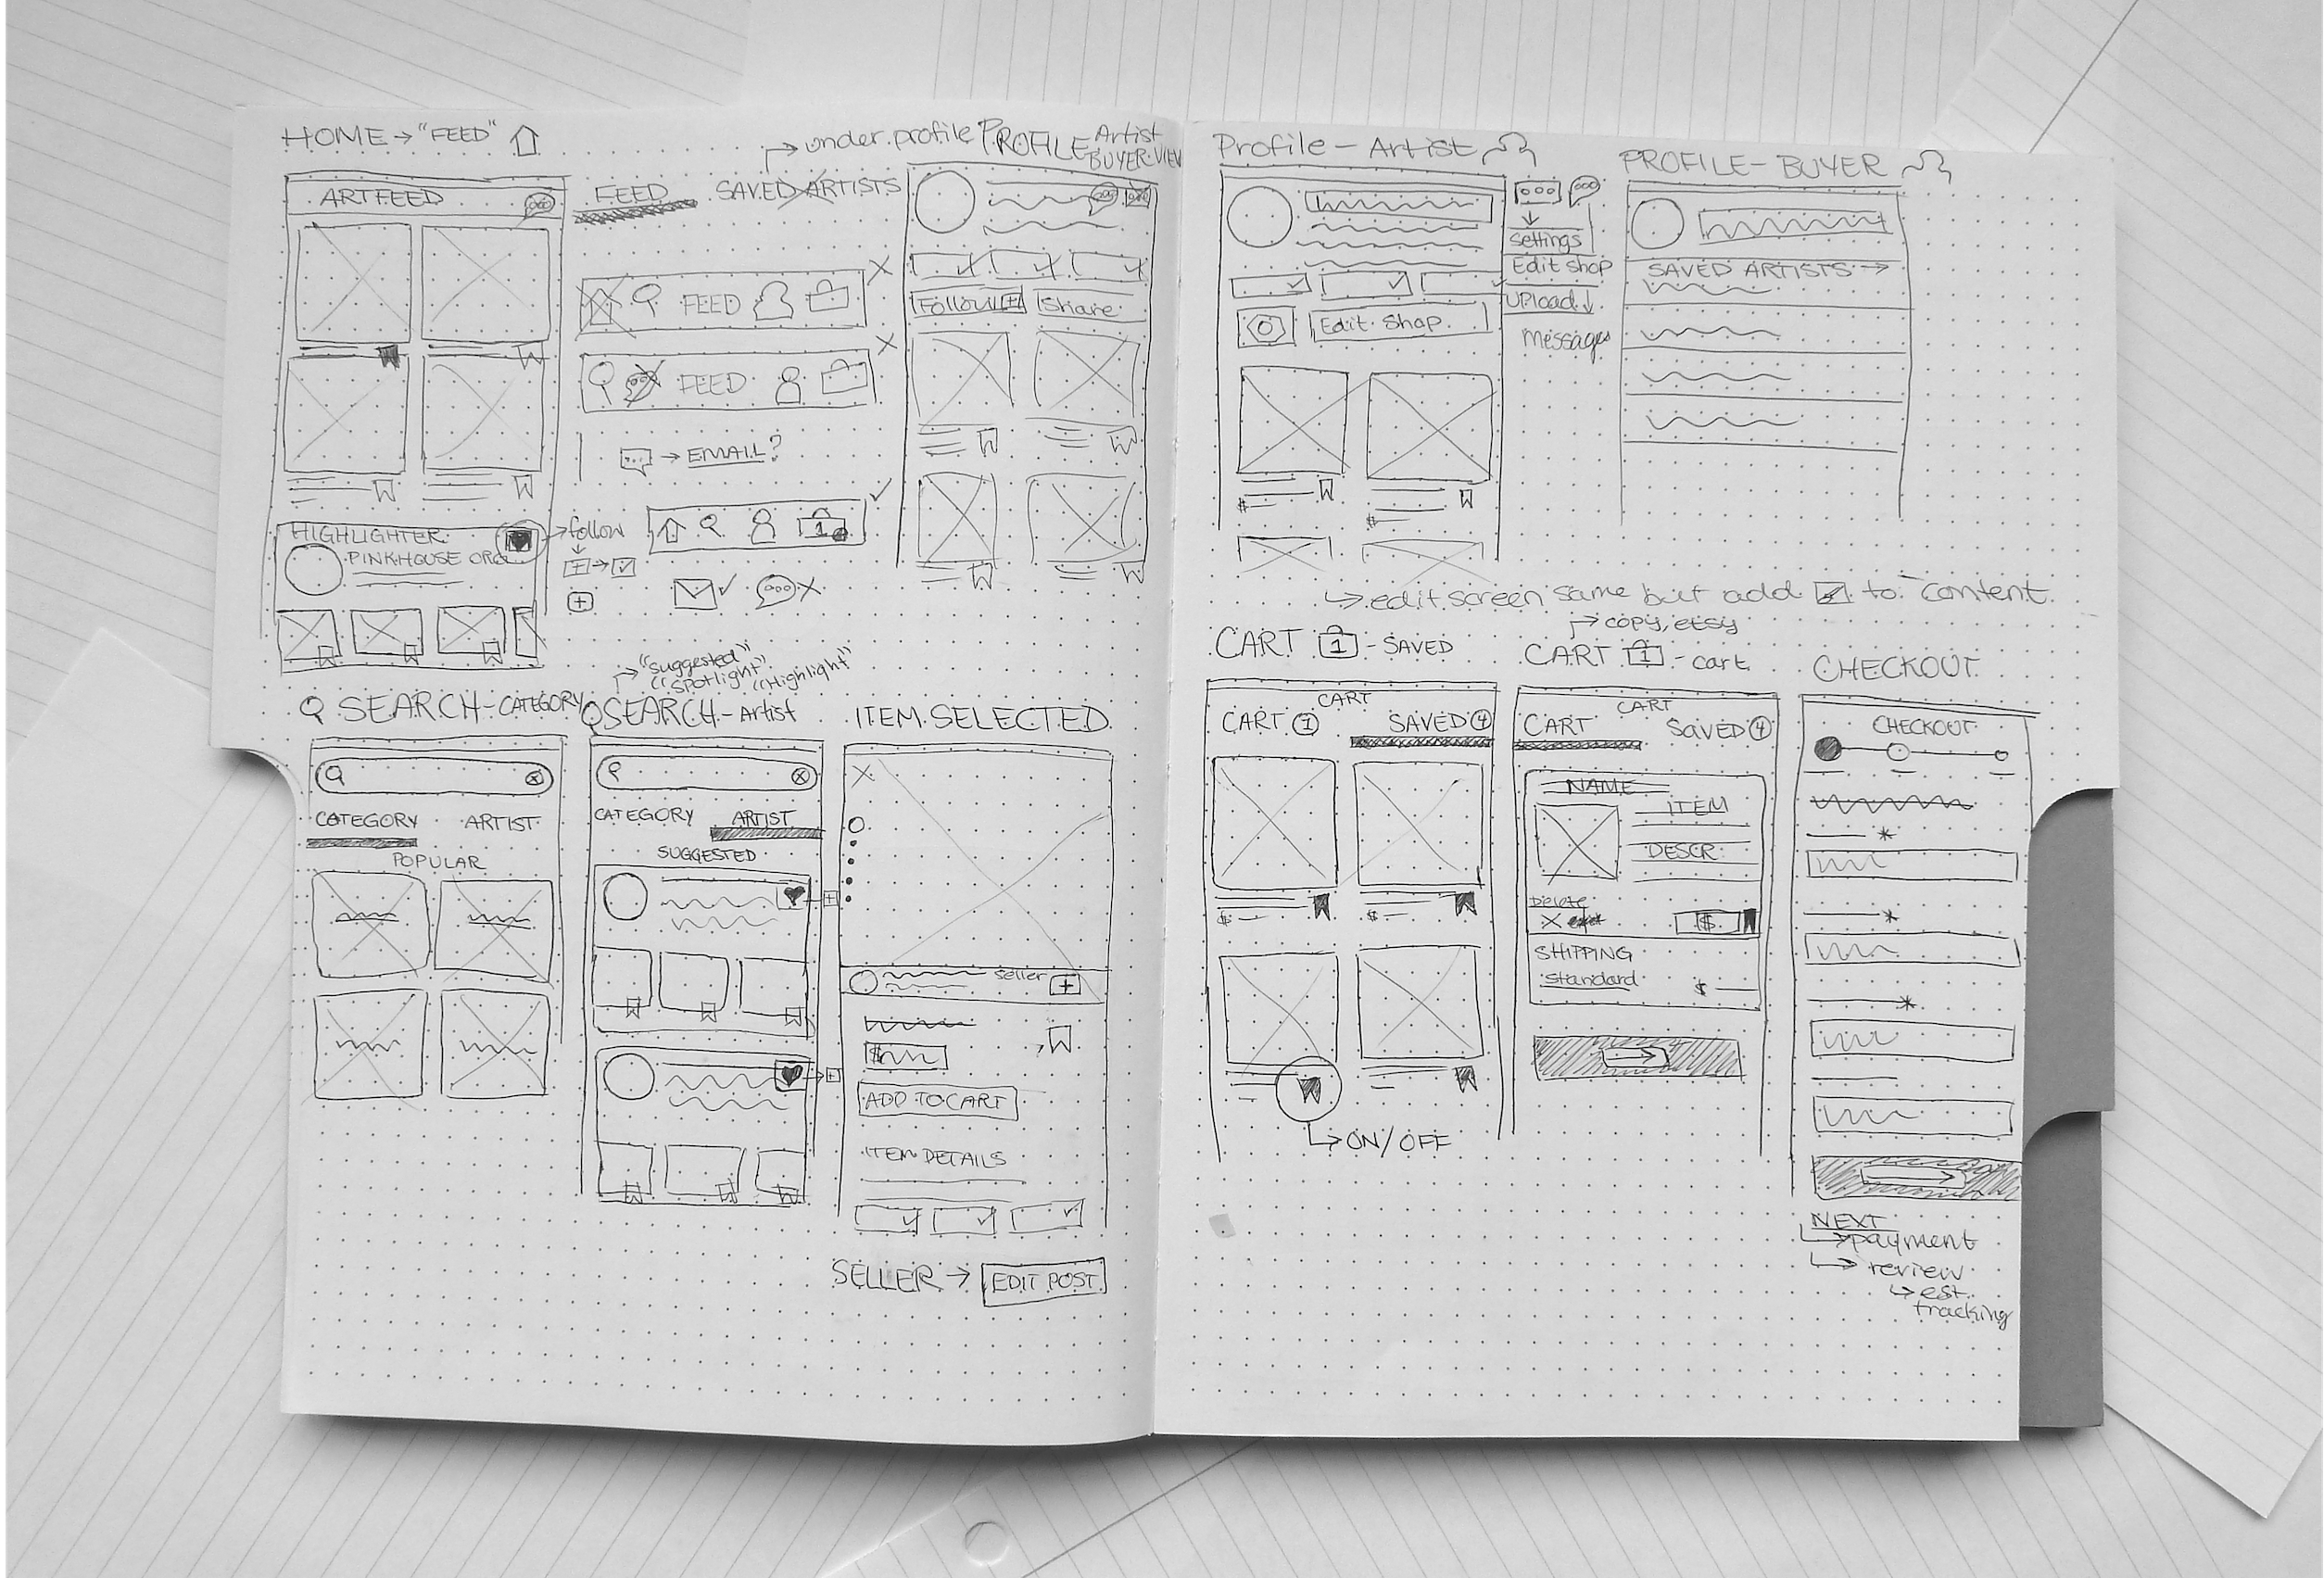 HOME → "FEED"
ARTFEED
FEED
SAVED ARTISTS
→ under profile
PROFILE - Artist
BUYER VIEW
FEED
FEED
→ EMAIL?
Follow +
Share
HIGHLIGHTER
PINKHOUSE ORG
→ follow
1
"Suggested"
"Spotlight"
"Highlight"
SEARCH - CATEGORY
CATEGORY
ARTIST
POPULAR
SEARCH - Artist
CATEGORY
ARTIST
SUGGESTED
ITEM SELECTED
X
seller
+
$
ADD TO CART
ITEM DETAILS
SELLER → EDIT POST
Profile - Artist
Settings
Edit shop
Upload ↓
Messages
Edit Shop
$
$
PROFILE - BUYER
SAVED ARTISTS →
→ edit screen same but add to content
CART 1 - SAVED
CART
CART 1
SAVED 4
$
$
→ ON/OFF
→ copy, etsy
CART 1 - cart
CART
CART
SAVED 4
NAME
ITEM
DESCR
Delete
X
$
SHIPPING
Standard
$
CHECKOUT
CHECKOUT
*
*
*
NEXT
→ payment
→ review
→ est.
tracking